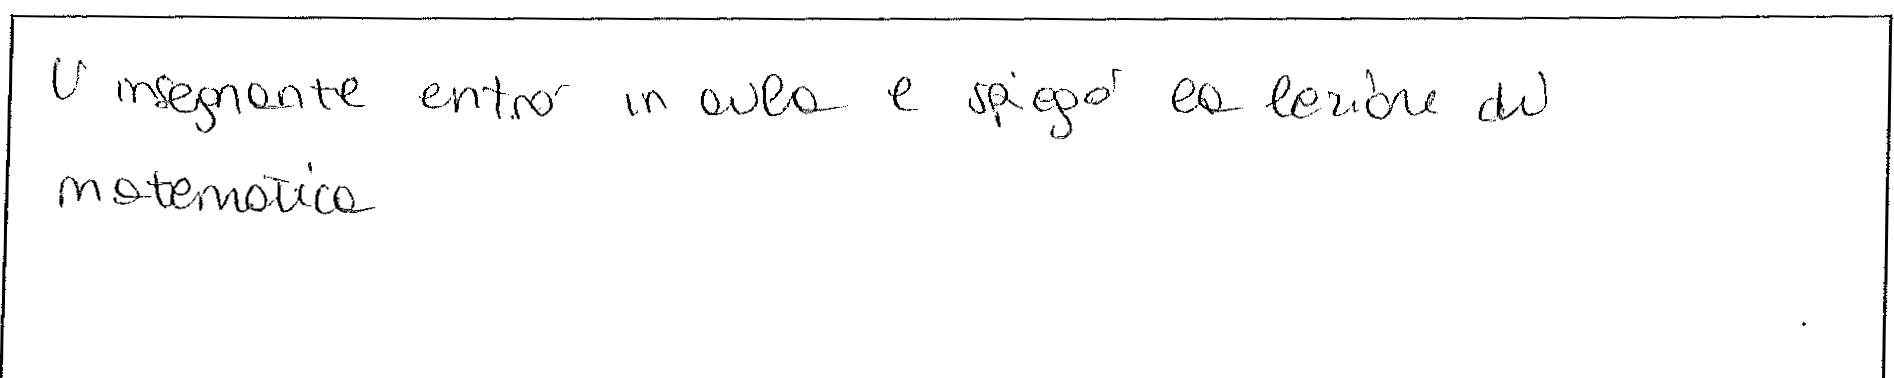 L' insegnante entrò in aula e spiegò la lezione di
matematica